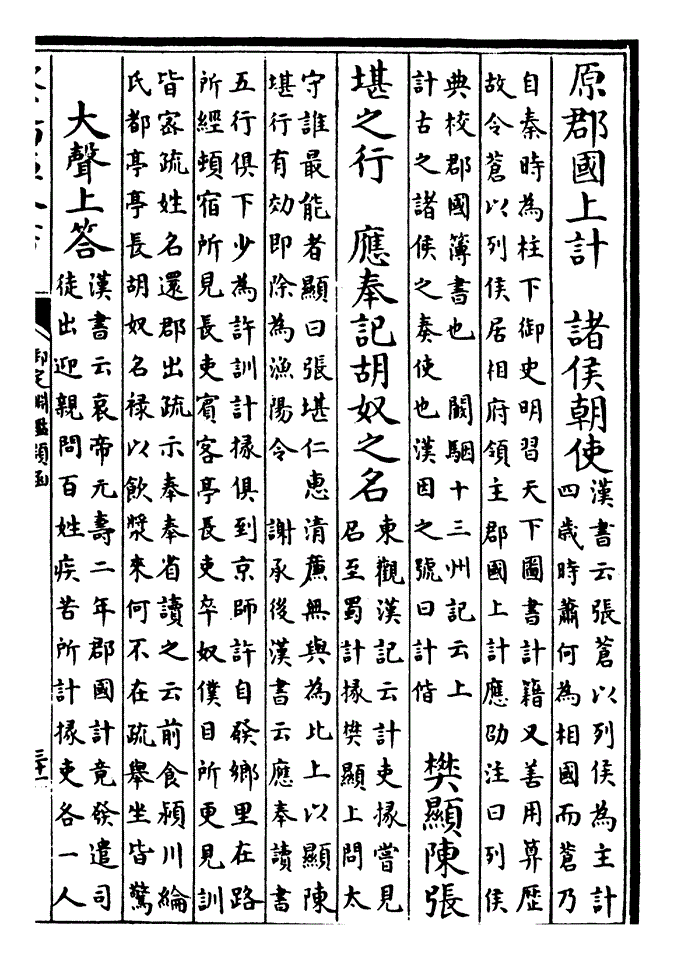 原郡國上計　諸侯朝使
漢書云張蒼以列侯為主計
四歲時蕭何為相國而蒼乃
自秦時為柱下御史明習天下圖書計籍又善用算歷
故令蒼以列侯居相府領主郡國上計應劭注曰列侯
典校郡國簿書也　闞駰十三州記云上
計古之諸侯之奏使也漢因之號曰計偕
樊顯陳張
堪之行　應奉記胡奴之名
東觀漢記云計吏掾嘗見
召至蜀計掾樊顯上問太
守誰最能者顯曰張堪仁惠清廉無與為比上以顯陳
堪行有効即除為漁陽令　謝承後漢書云應奉讀書
五行俱下少為許訓計掾俱到京師許自發鄉里在路
所經頓宿所見長吏賓客亭長吏卒奴僕目所更見訓
皆密疏姓名還郡出疏示奉奉省讀之云前食潁川綸
氏都亭亭長胡奴名祿以飲漿來何不在疏舉坐皆驚
大聲上答
漢書云哀帝元壽二年郡國計竟發遣司
徒出迎親問百姓疾苦所計掾吏各一人
御定淵鑑類函